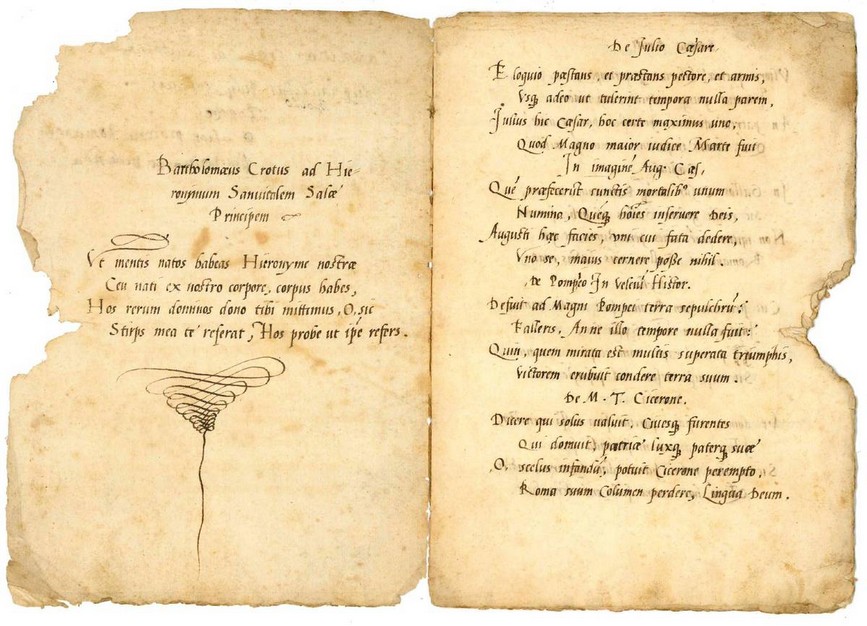 Bartholomæus Crotus ad Hie-
ronymum Sanuitalem Salæ
Principem
Vt mentis natos habeas Hieronyme nostræ
Ceu nati ex nostro corpore, corpus habes,
Hos rerum dominos dono tibi mittimus, O, sic
Stirps mea te referat, Hos probe ut ipē refers.
De Julio Cæsare
Eloquio pæstans, et præstans pectore, et armis,
Vsq; adeo ut tulerint tempora nulla parem,
Julius hic Cæsar, hoc certe maximus uno,
Quod Magno maior iudice Marte fuit
In imaginē Aug. Cæs,
Quē præfecerīt cunctis mortalibꝰ unum
Numina, Quēq; hoīes inseruere Deis,
Augusti hæc facies, uni cui fata dedere,
Vno se, maius cernere poße nihil.
De Pompeo In veleū Histor.
Defuit ad Magni Pompei terra sepulchrū?
Falleris, An ne illo tempore nulla fuit?
Quin, quem mirata est multis superata triumphis,
Victorem erubuit condere terra suum.
De M. T. Cicerone.
Dicere qui solus ualuit, Ciuesq; furentes
Qui domuit, patriæ luxq; paterq; suæ
O, scelus infandū, potuit Cicerone perempto,
Roma suum Columen perdere, Lingua Deum.